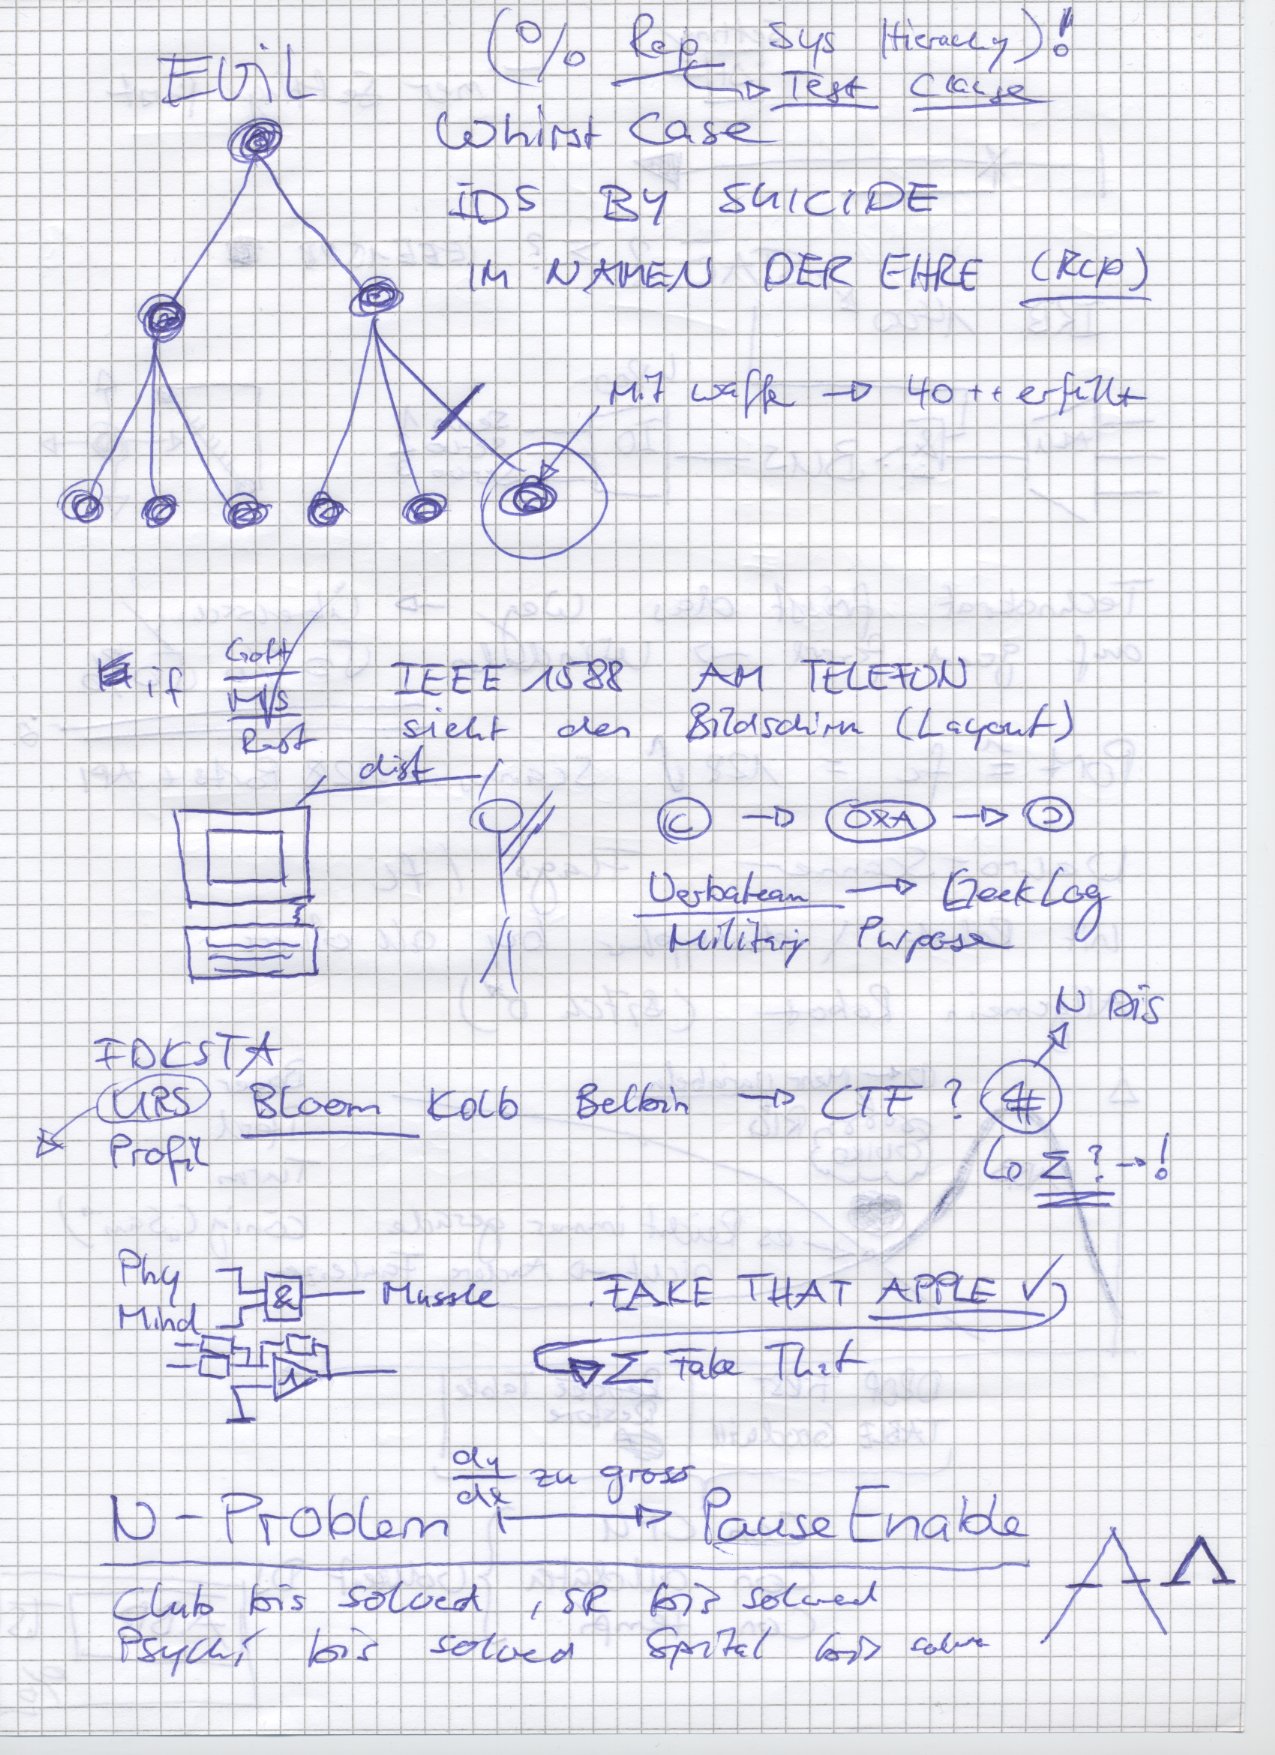 EViL
(% Rep Sys Hierachy)!
Test Clause
Whirst Case
IDS BY SUICIDE
IM NAMEN DER EHRE (Rep)
Mit waffe → 40++ erfüllt
if Gott
M/S
Rest
IEEE 1588 AM TELEFON
sieht den Bildschirm (Layout)
dist
C → → 
Verbatean → GeekLog
Military Purpose
N Dis
URS Bloom Kolb Belbin → CTF ? #
Profil
Σ ? → !
Phy
Mind & Mussle
FAKE THAT APPLE ✓
1
Σ Fake That
dy/dx zu gross
N-Problem → Pause Enable
Club bis solved, SR bis solved
Psychi bis solved Spital bis solve